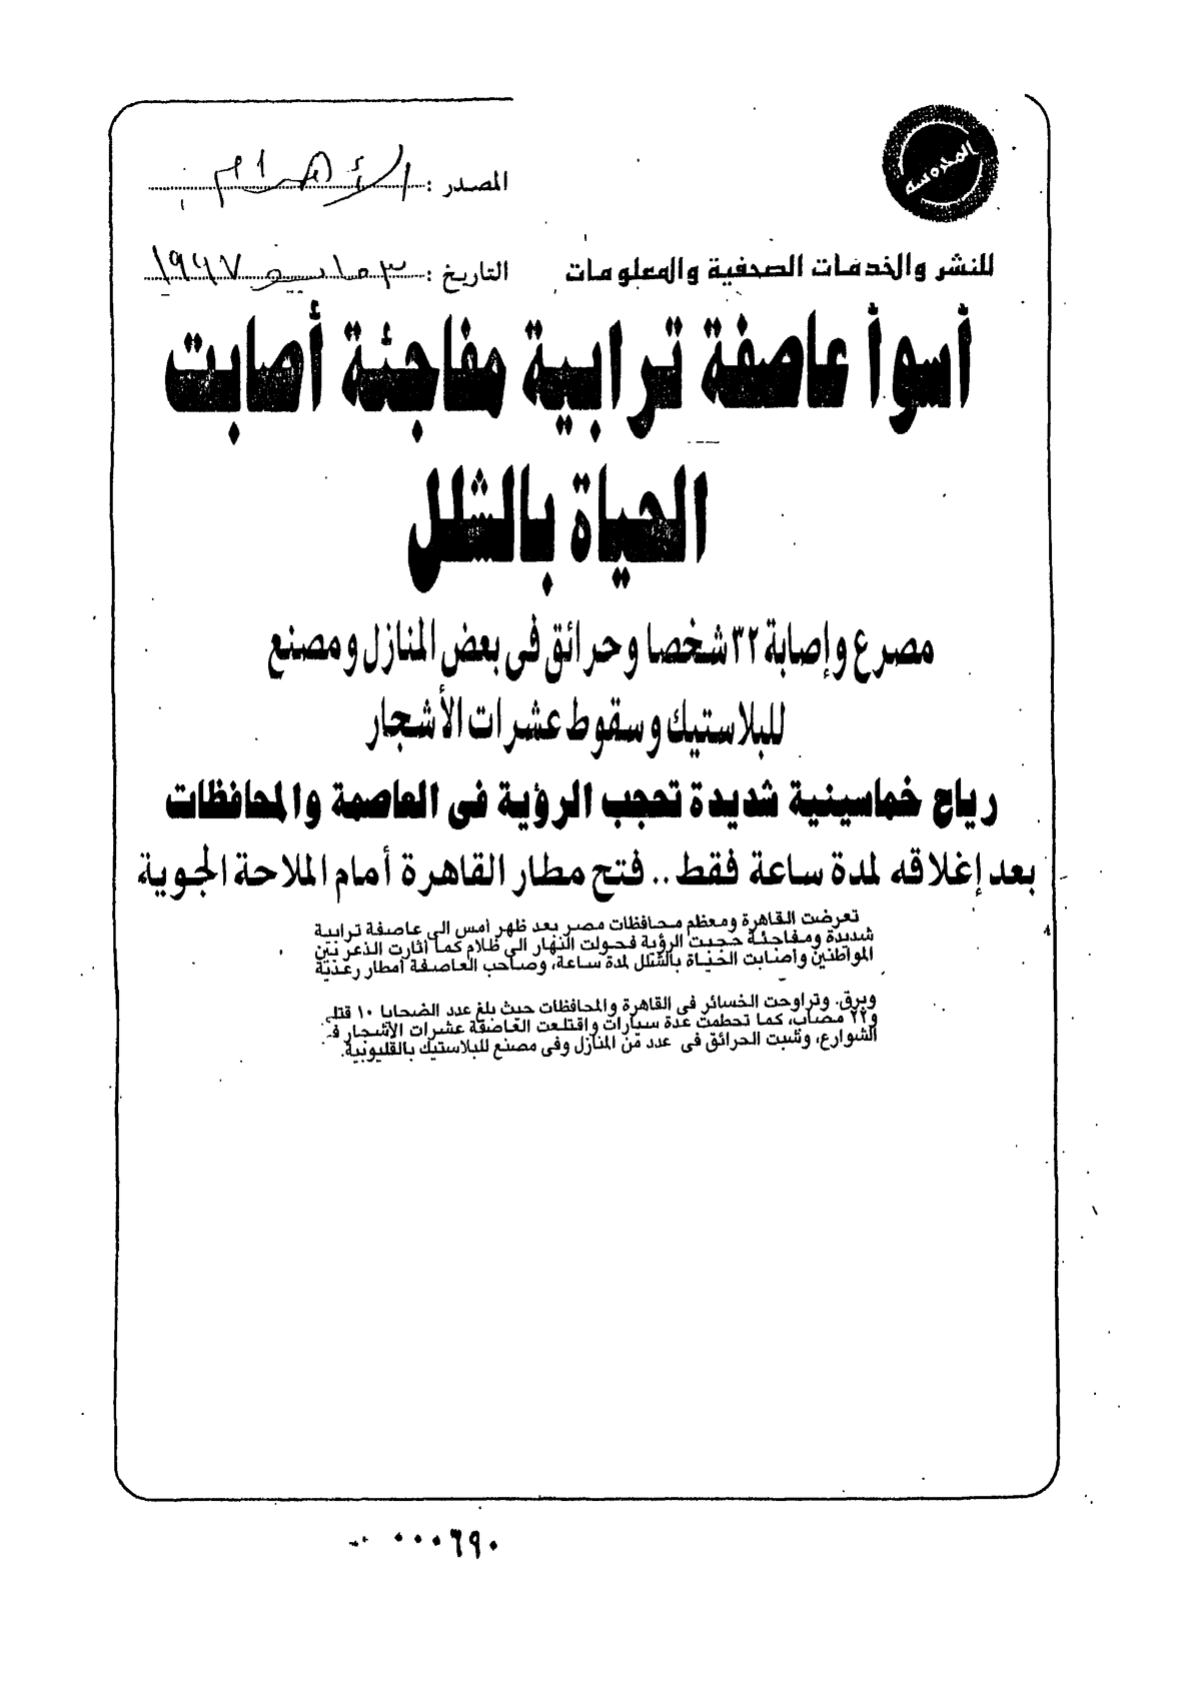 المحروسة
المصدر : الأهرام
للنشر والخدمات الصحفية والمعلومات
التاريخ : ٣ مايو ١٩٩٧
أسوأ عاصفة ترابية مفاجئة أصابت
الحياة بالشلل
مصرع وإصابة ٣٢ شخصا وحرائق فى بعض المنازل ومصنع
للبلاستيك وسقوط عشرات الأشجار
رياح خماسينية شديدة تحجب الرؤية فى العاصمة والمحافظات
بعد إغلاقه لمدة ساعة فقط .. فتح مطار القاهرة أمام الملاحة الجوية
تعرضت القاهرة ومعظم محافظات مصر بعد ظهر أمس الى عاصفة ترابية
شديدة ومفاجئة حجبت الرؤية فحولت النهار الى ظلام كما أثارت الذعر بين
المواطنين وأصابت الحياة بالشلل لمدة ساعة، وصاحب العاصفة أمطار رعدية
وبرق. وتراوحت الخسائر فى القاهرة والمحافظات حيث بلغ عدد الضحايا ١٠ قتلى
و٢٢ مصاب، كما تحطمت عدة سيارات واقتلعت العاصفة عشرات الأشجار فى
الشوارع، وشبت الحرائق فى عدد من المنازل وفى مصنع للبلاستيك بالقليوبية.
٠٠٠٦٩٠